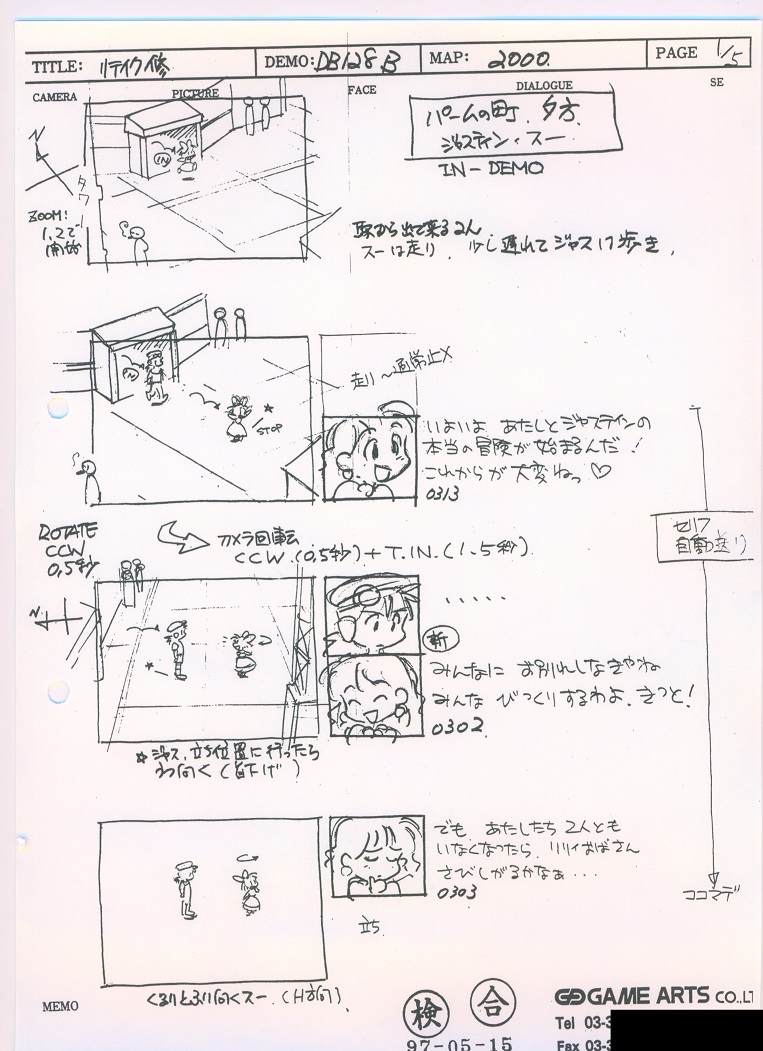 TITLE: リテイク修
DEMO: DB128B
MAP: 2000
PAGE 1/5
CAMERA
PICTURE
FACE
DIALOGUE
SE
パームの町、夕方
ジャスティン・スー
IN-DEMO
N
ZOOM:
1.2で
開始
IN
駅から出て来る2人
スーは走り、少し遅れてジャスは歩き、
IN
STOP
走り〜
いよいよ あたしとジャスティンの
本当の冒険が始まるんだ!
これからが大変ねっ♡
0313
ROTATE
CCW
0,5秒
カメラ回転
CCW.(0,5秒)+T.IN.(1.5秒)
セリフ
自動送り
N
・・・・・
新
みんなに お別れしなきゃね
みんな びっくりするわよ、きっと!
0302
☆ジャス、立ち位置に行ったら
(首下げ)
でも、あたしたち 2人とも
いなくなったら、リリィおばさん
さびしがるかなぁ・・・
0303
立ち
ココマデ
くるりとふり向くスー、
MEMO
検
合
97-05-15
GAME ARTS CO.,LT
Tel 03-3
Fax 03-3